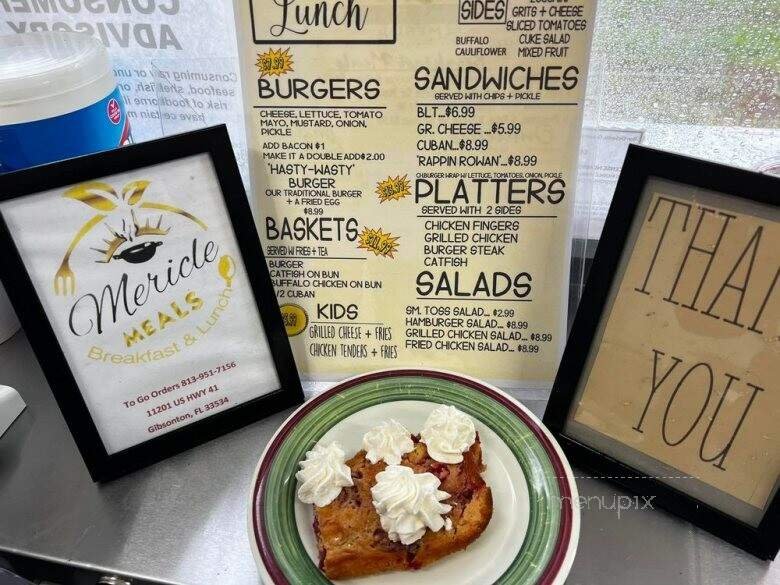 CONSUMER
ADVISORY
Consuming raw or und
seafood, shell
risk of foodborne
have certain m
Lunch
SIDES
GRITS + CHEESE
SLICED TOMATOES
BUFFALO
CAULIFLOWER
CUKE SALAD
MIXED FRUIT
BURGERS
CHEESE, LETTUCE, TOMATO
MAYO, MUSTARD, ONION,
PICKLE
ADD BACON $1
MAKE IT A DOUBLE ADD $2.00
"HASTY-WASTY"
BURGER
OUR TRADITIONAL BURGER
+ A FRIED EGG
$8.99
BASKETS
SERVED W/ FRIES + TEA
BURGER
CATFISH ON BUN
BUFFALO CHICKEN ON BUN
1/2 CUBAN
KIDS
GRILLED CHEESE + FRIES
CHICKEN TENDERS + FRIES
SANDWICHES
SERVED WITH CHIPS + PICKLE
BLT...$6.99
GR. CHEESE ...$5.99
CUBAN...$8.99
'RAPPIN ROWAN'...$8.99
CH.BURGER WRAP W/ LETTUCE, TOMATOES, ONION, PICKLE
PLATTERS
SERVED WITH 2 SIDES
CHICKEN FINGERS
GRILLED CHICKEN
BURGER STEAK
CATFISH
SALADS
SM. TOSS SALAD... $2.99
HAMBURGER SALAD... $8.99
GRILLED CHICKEN SALAD... $8.99
FRIED CHICKEN SALAD... $8.99
Mericle
MEALS
Breakfast & Lunch
To Go Orders 813-951-7156
11201 US HWY 41
Gibsonton, FL 33534
THAN
YOU
menupix